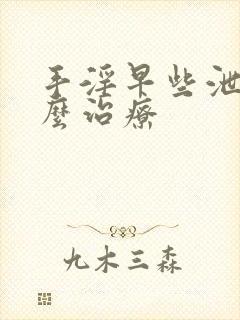 手淫早些泄
麼治療
九木三森